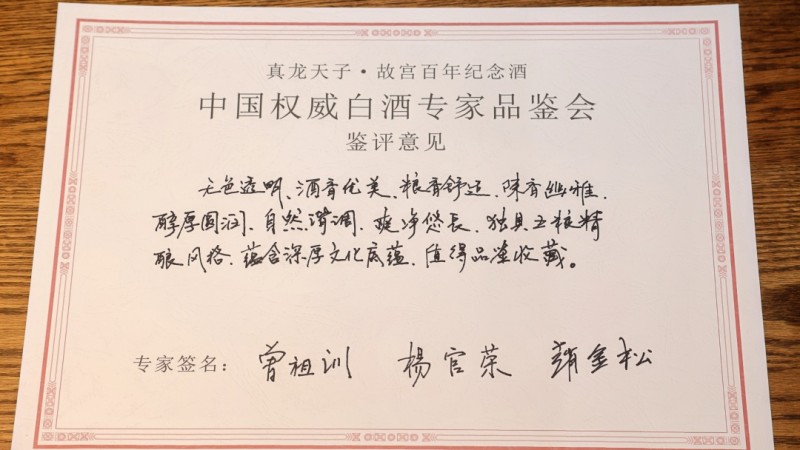 真龙天子·故宫百年纪念酒
中国权威白酒专家品鉴会
鉴评意见
无色透明、酒香优美、粮香舒适、陈香幽雅、
醇厚圆润、自然谐调、爽净悠长、独具五粮精
酿风格、蕴含深厚文化底蕴、值得品鉴收藏。
专家签名：曾祖训 楊官荣 趙金松